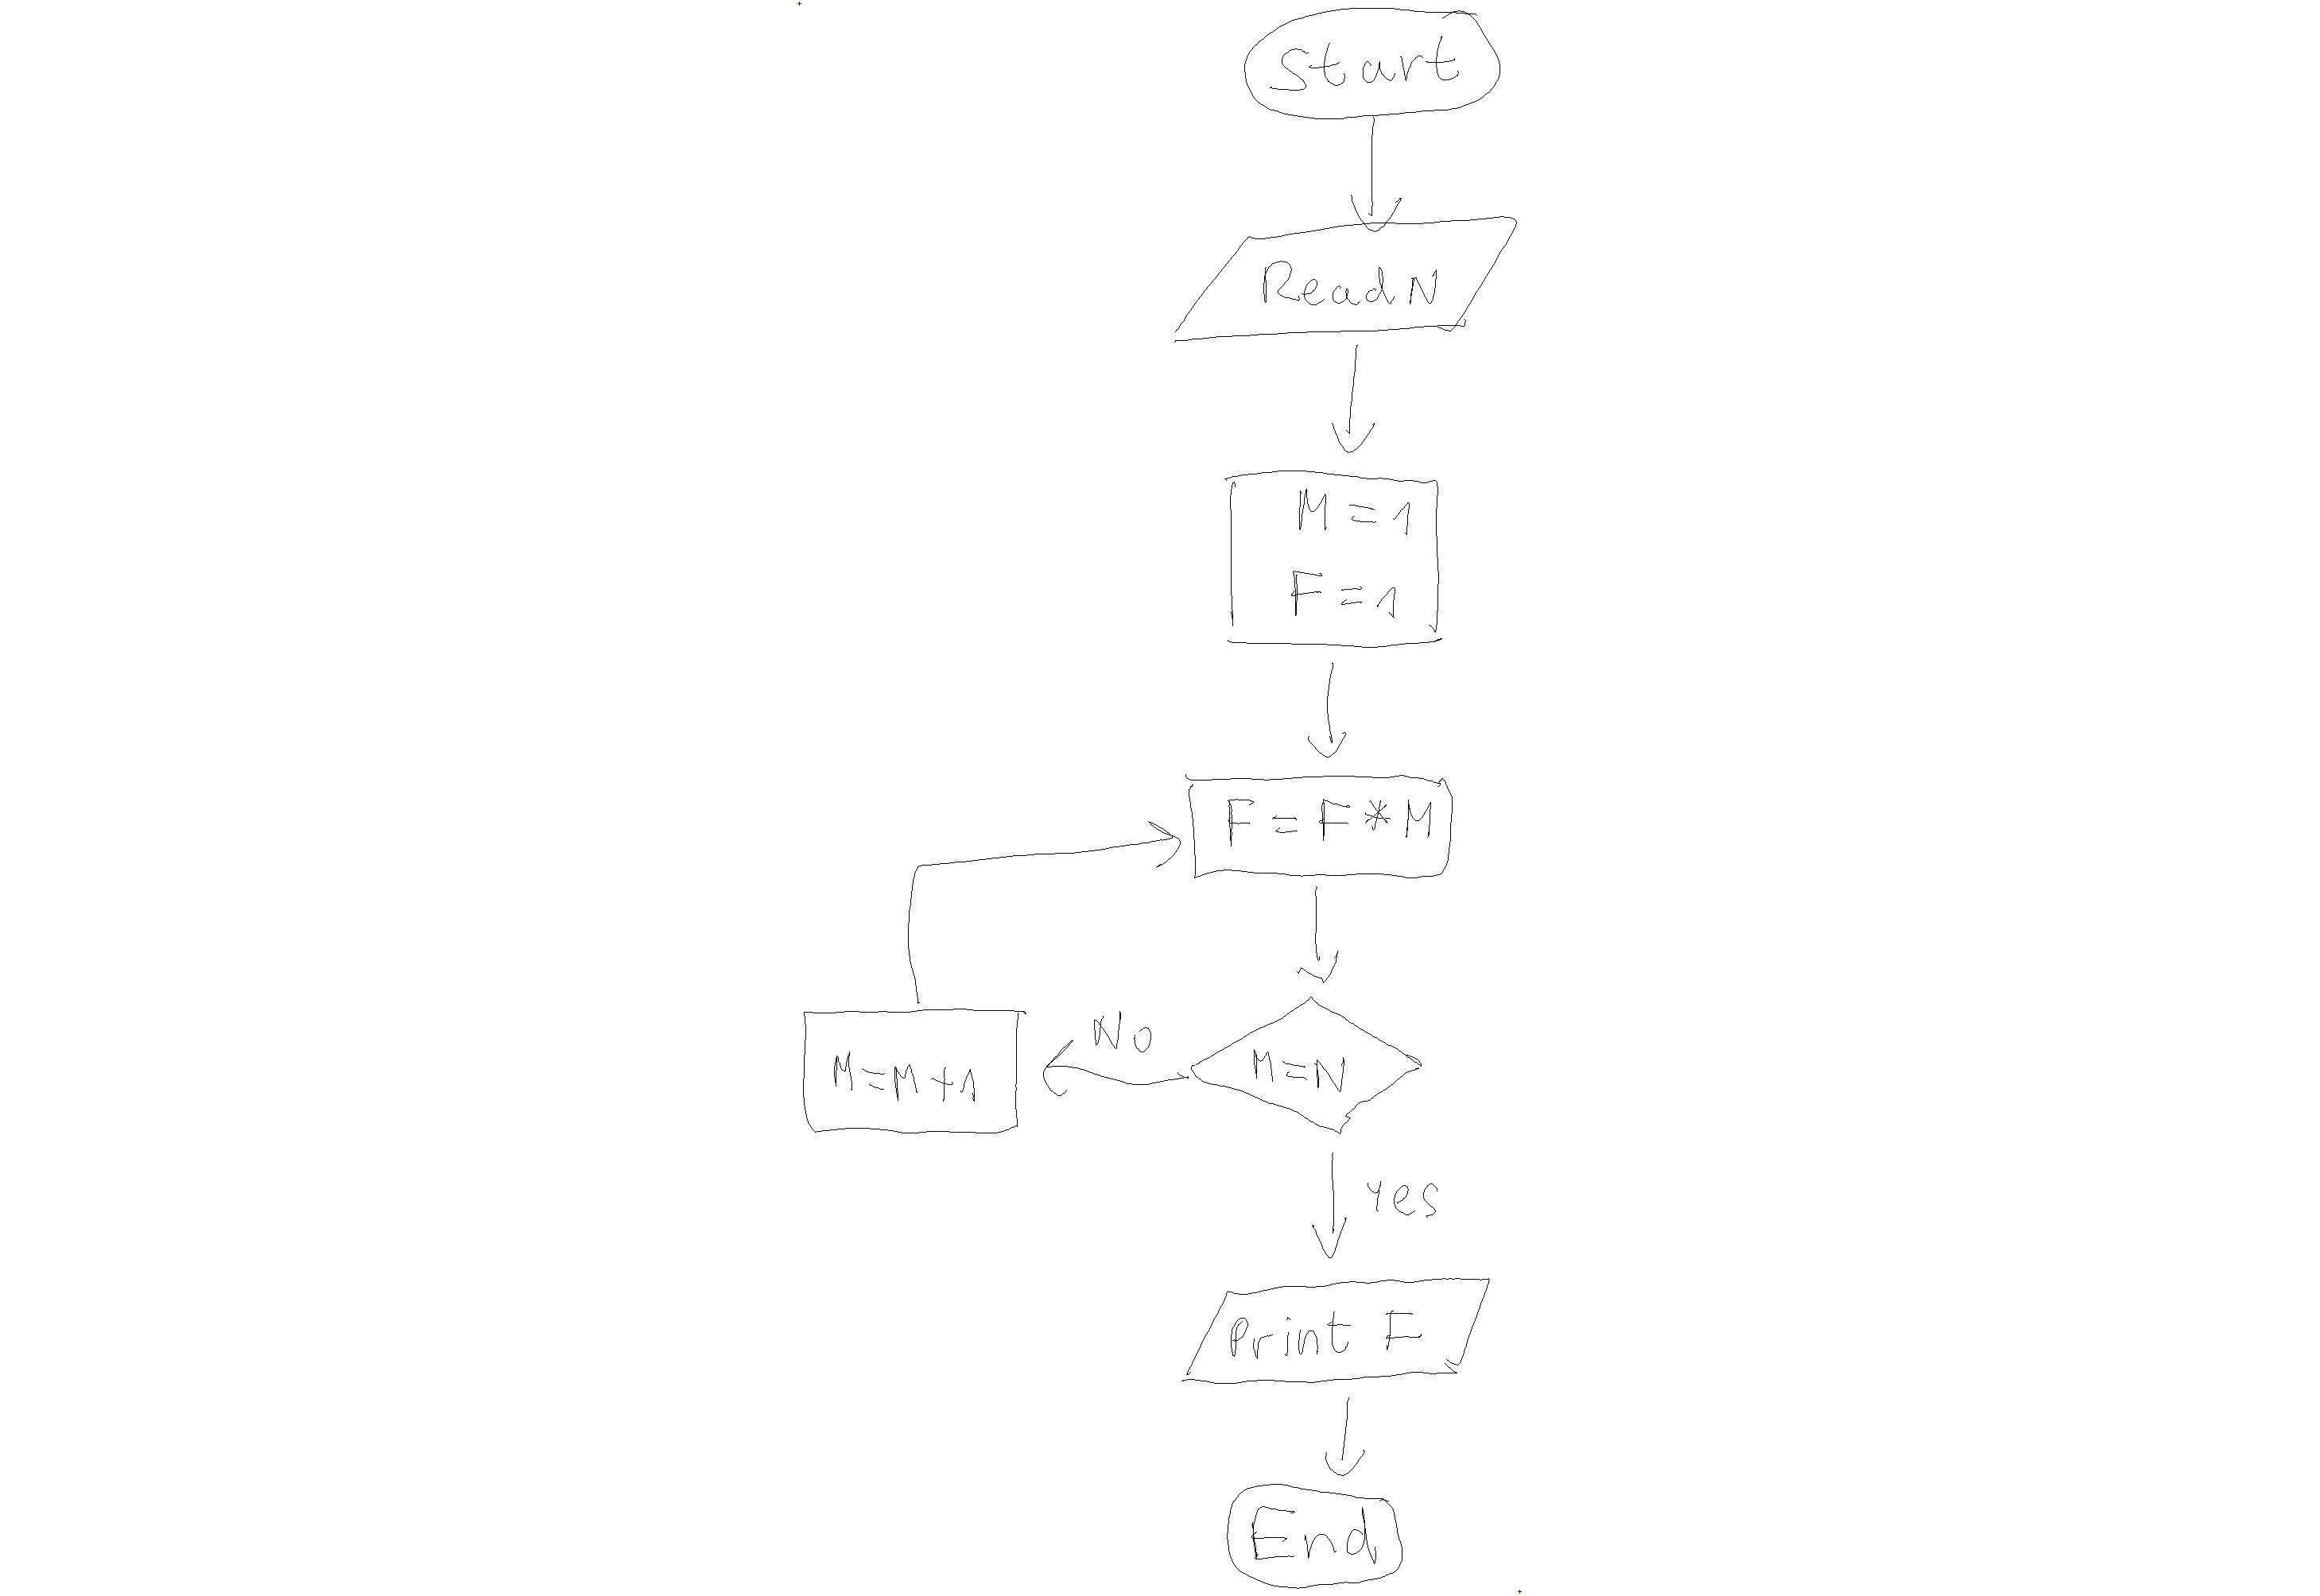 Start
Read N
M = 1
F = 1
F = F * M
No
M = N
M = M + 1
Yes
Print F
End